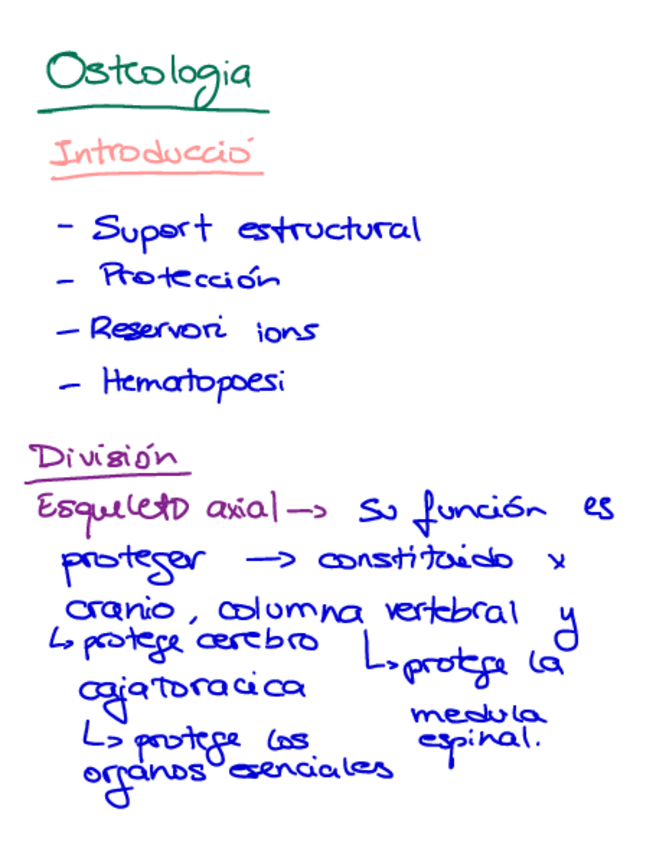 Osteologia
Introducció
- Suport estructural
- Protección
- Reservori ions
- Hematopoesi
División
Esqueleto axial → Su función es
proteger → constituido x
cranio, columna vertebral y
↳ protege cerebro ↳ protege la
caja toracica
medula
↳ protege los espinal.
organos esenciales